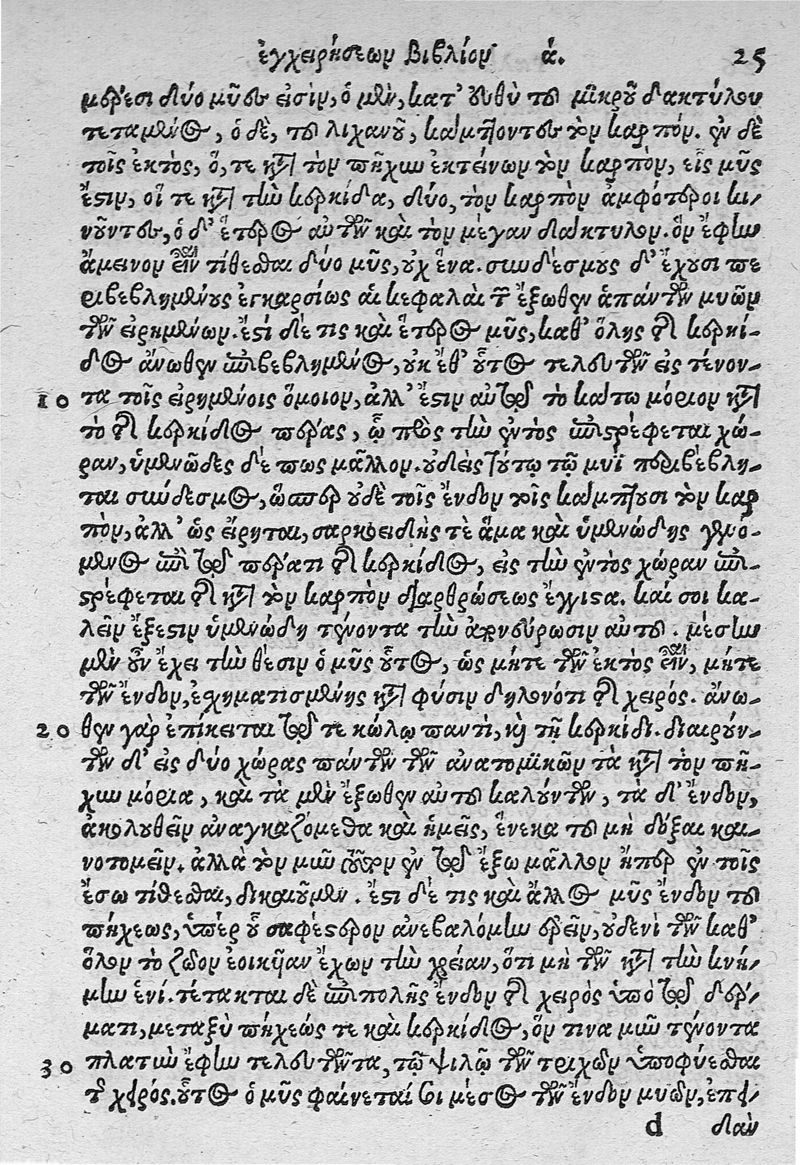 ἐγχειρήσεων βιβλίον ά. 25
μέρεσι δύο μῦες εἰσὶν, ὁ μὲν, κατ' εὐθὺ τοῦ μικροῦ δακτύλου
τεταμένος, ὁ δὲ, τοῦ λιχανοῦ, κάμπτοντες τὸν καρπόν. ἐν δὲ
τοῖς ἐκτὸς, ὅ, τε κατὰ τὸν πῆχυν ἐκτείνων τὸν καρπὸν, εἷς μῦς
ἔστιν, οἵ τε κατὰ τὴν κερκίδα, δύο, τὸν καρπὸν ἀμφότεροι κι-
νοῦντες, ὁ δ' ἕτερος αὐτῶν καὶ τὸν μέγαν δάκτυλον. ὃν ἔφην
ἄμεινον εἶναι τίθεσθαι δύο μῦς, οὐχ ἕνα. συνδέσμους δ' ἔχουσι πε
ριβεβλημένους ἐγκαρσίως αἱ κεφαλαὶ τῶν ἔξωθεν ἁπάντων μυῶν
τῶν εἰρημένων. ἔστι δέ τις καὶ ἕτερος μῦς, καθ' ὅλης τῆς κερκί-
δος ἄνωθεν ἐπιβεβλημένος, οὐκ ἔθ' οὗτος τελευτῶν εἰς τένον-
10 τα τοῖς εἰρημένοις ὅμοιον, ἀλλ' ἔστιν αὐτοῦ τὸ κάτω μόριον κατὰ
τὸ τῆς κερκίδος πέρας, ᾧ πρὸς τὴν ἐντὸς ἐπιστρέφεται χώ-
ραν, ὑμενῶδες δέ πως μᾶλλον. οὐδεὶς τούτῳ τῷ μυῒ περιβέβλη-
ται σύνδεσμος, ὥσπερ οὐδὲ τοῖς ἔνδον τοῖς κάμπτουσι τὸν καρ
πὸν, ἀλλ' ὡς εἴρηται, σαρκοειδής τὲ ἅμα καὶ ὑμενώδης γενό-
μενος ἐπὶ τῷ πέρατι τῆς κερκίδος, εἰς τὴν ἐντὸς χώραν ἐπι-
στρέφεται τῆς κατὰ τὸν καρπὸν διαρθρώσεως ἔγγιστα. καί σοι κα-
λεῖν ἔξεστιν ὑμενώδη τένοντα τὴν ἀπονεύρωσιν αὐτοῦ. μέσην
μὲν οὖν ἔχει τὴν θέσιν ὁ μῦς οὗτος, ὡς μήτε τῶν ἐκτὸς εἶναι, μήτε
τῶν ἔνδον, ἐσχηματισμένης κατὰ φύσιν δηλονότι τῆς χειρός. ἄνω-
20 θεν γὰρ ἐπίκειται τῷ τε κώλῳ παντὶ, καὶ τῇ κερκίδι. διαιρούν-
των δ' εἰς δύο χώρας πάντων τῶν ἀνατομικῶν τὰ κατὰ τὸν πῆ-
χυν μόρια, καὶ τὰ μὲν ἔξωθεν αὐτοῦ καλούντων, τὰ δ' ἔνδον,
ἀκολουθεῖν ἀναγκαζόμεθα καὶ ἡμεῖς, ἕνεκα τοῦ μὴ δόξαι και-
νοτομεῖν. ἀλλὰ τὸν μῦν τοῦτον ἐν τῷ ἔξω μᾶλλον ἤπερ ἐν τοῖς
ἔσω τίθεσθαι, δικαιοῦμεν. ἔστι δέ τις καὶ ἄλλος μῦς ἔνδον τοῦ
πήχεως, ὑπὲρ οὗ σαφέστερον ἀνεβαλόμην ἐρεῖν, οὐδενὶ τῶν καθ'
ὅλον τὸ ζῶον ἐοικῆαν ἔχων τὴν χρείαν, ὅτι μὴ τῶν κατὰ τὴν κνή-
μην ἑνί. τέτακται δὲ ἐπιπολῆς ἔνδον τῆς χειρὸς ὑπὸ τῷ δέρ-
ματι, μεταξὺ πήχεώς τε καὶ κερκίδος, ὅν τινα μῦν τένοντα
30 πλατὺν ἔφην τελευτῶντα, τῷ ψιλῷ τῶν τριχῶν ὑποφύεσθαι
τῆς χειρός. οὗτος ὁ μῦς φαίνεταί σοι μέσος τῶν ἔνδον μυῶν, ἐπει-
d δὰν